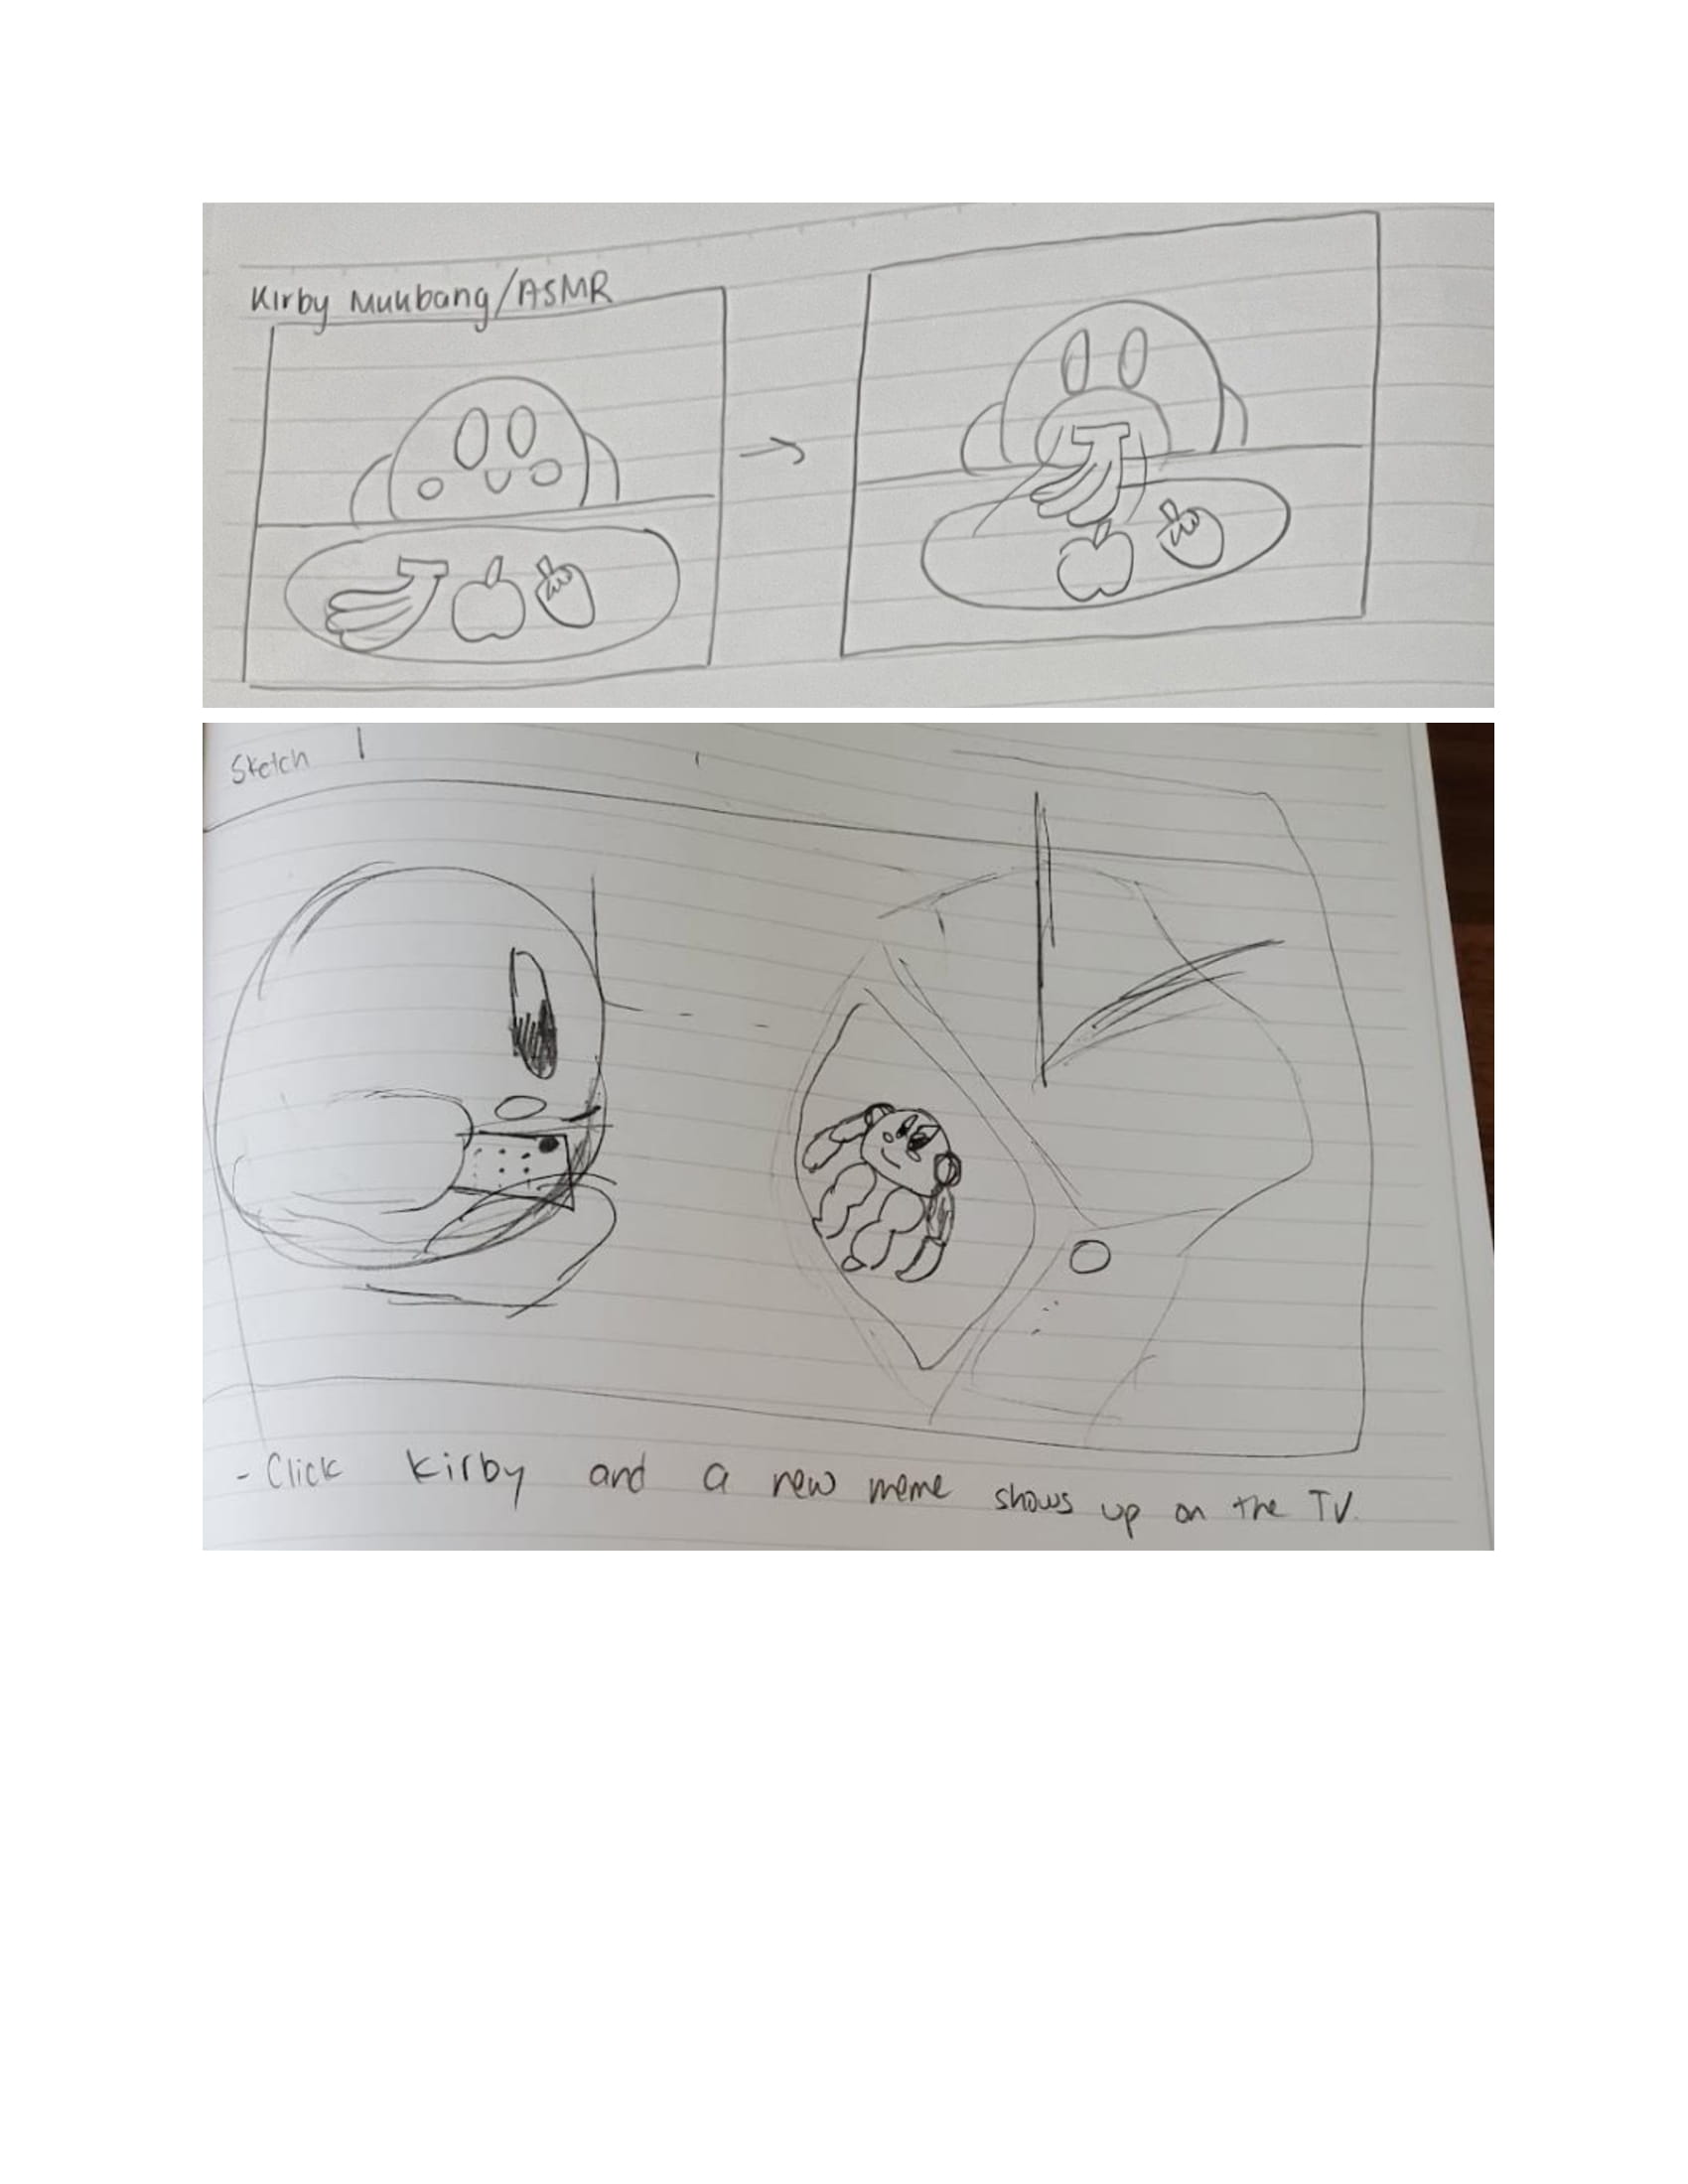 Kirby Mukbang/ASMR
Sketch 1
- Click Kirby and a new meme shows up on the TV.